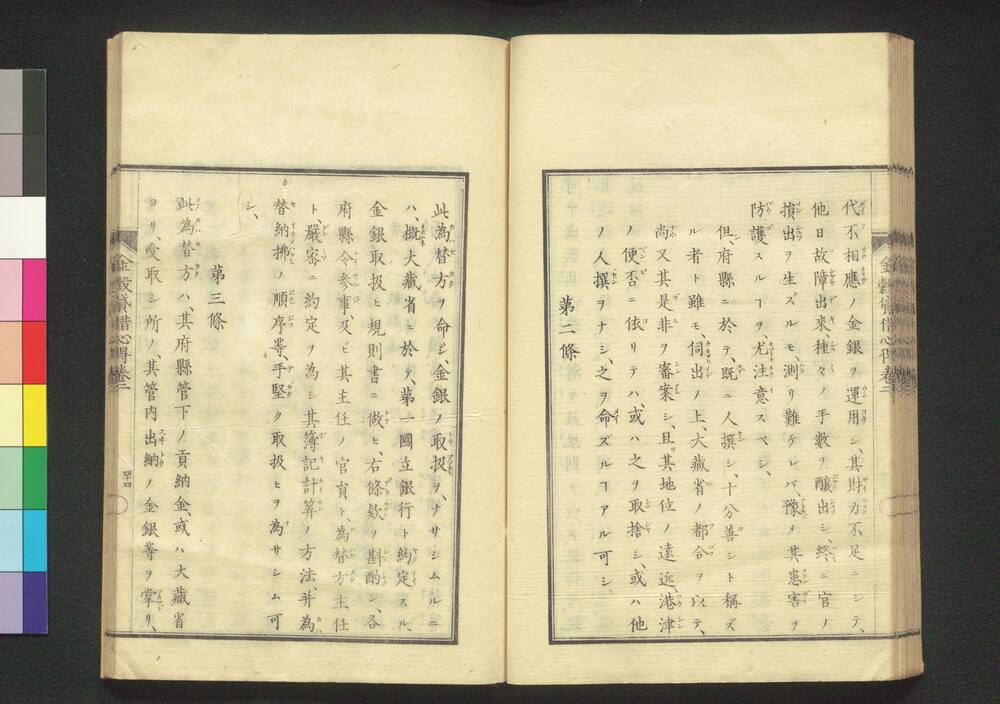 代不相應ノ金銀ヲ運用シ、其財力不足ニシテ、
他日故障出來、種々ノ手數ヲ釀出シ、終ニ官ノ
損出ヲ生ズルモ、測リ難ケレバ豫メ其患害ヲ
防護スルヿヲ、尤注意スベシ、
但、府縣ニ於テ、既ニ人撰シ、十分善シト稱ズ
ル者ト雖モ、伺出ノ上、大藏省ノ都合ヲ以テ、
尚又其是非ヲ審案シ、且ッ其地位ノ遠近、港津
ノ便否ニ依リテハ、或ハ之ヲ取捨シ、或ハ他
ノ人撰ヲナシ、之ヲ命ズルヿアル可シ、
第二條
此為替方ヲ命シ、金銀ノ取扱ヲ、ナサシムルニ
ハ、概子大藏省ニ於テ、第一國立銀行ト約定スル、
金銀取扱ヒ規則書ニ倣ヒ、右條欵ヲ斟酌シ、各
府縣令參事、及ビ其主任ノ官員ト為替方主任
ト、嚴審ニ約定ヲ為シ其簿記計算ノ方法、并為
替納拂ノ順序等、手堅ク取扱ヒヲ為サシム可
シ、
第三條
此為替方ハ、其府縣管下ノ貢納金、或ハ大藏省
ヨリ、受取シ所ノ、其管内出納ノ金銀等ヲ掌リ、
金穀貸借心得卷二
四十四